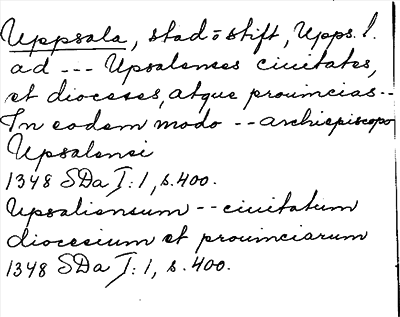 Uppsala, stad o stift, Upps. l.
ad --- Upsalenses ciuitates,
et dioceses, atque prouincias --
In eodem modo -- archiepiscopo
Upsalensi
1348 SDa I:1, s. 400.
Upsaliensum -- ciuitatum
diocesium et prouinciarum
1348 SDa I:1, s. 400.